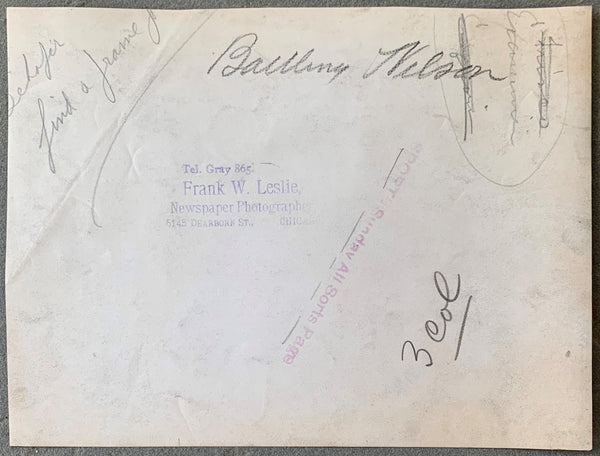 find a frame
Battling Nelson
Tel. Gray 865.
Frank W. Leslie,
Newspaper Photographer
5145 DEARBORN ST., CHICA
SPORT Sunday All Sorts Page
3 col